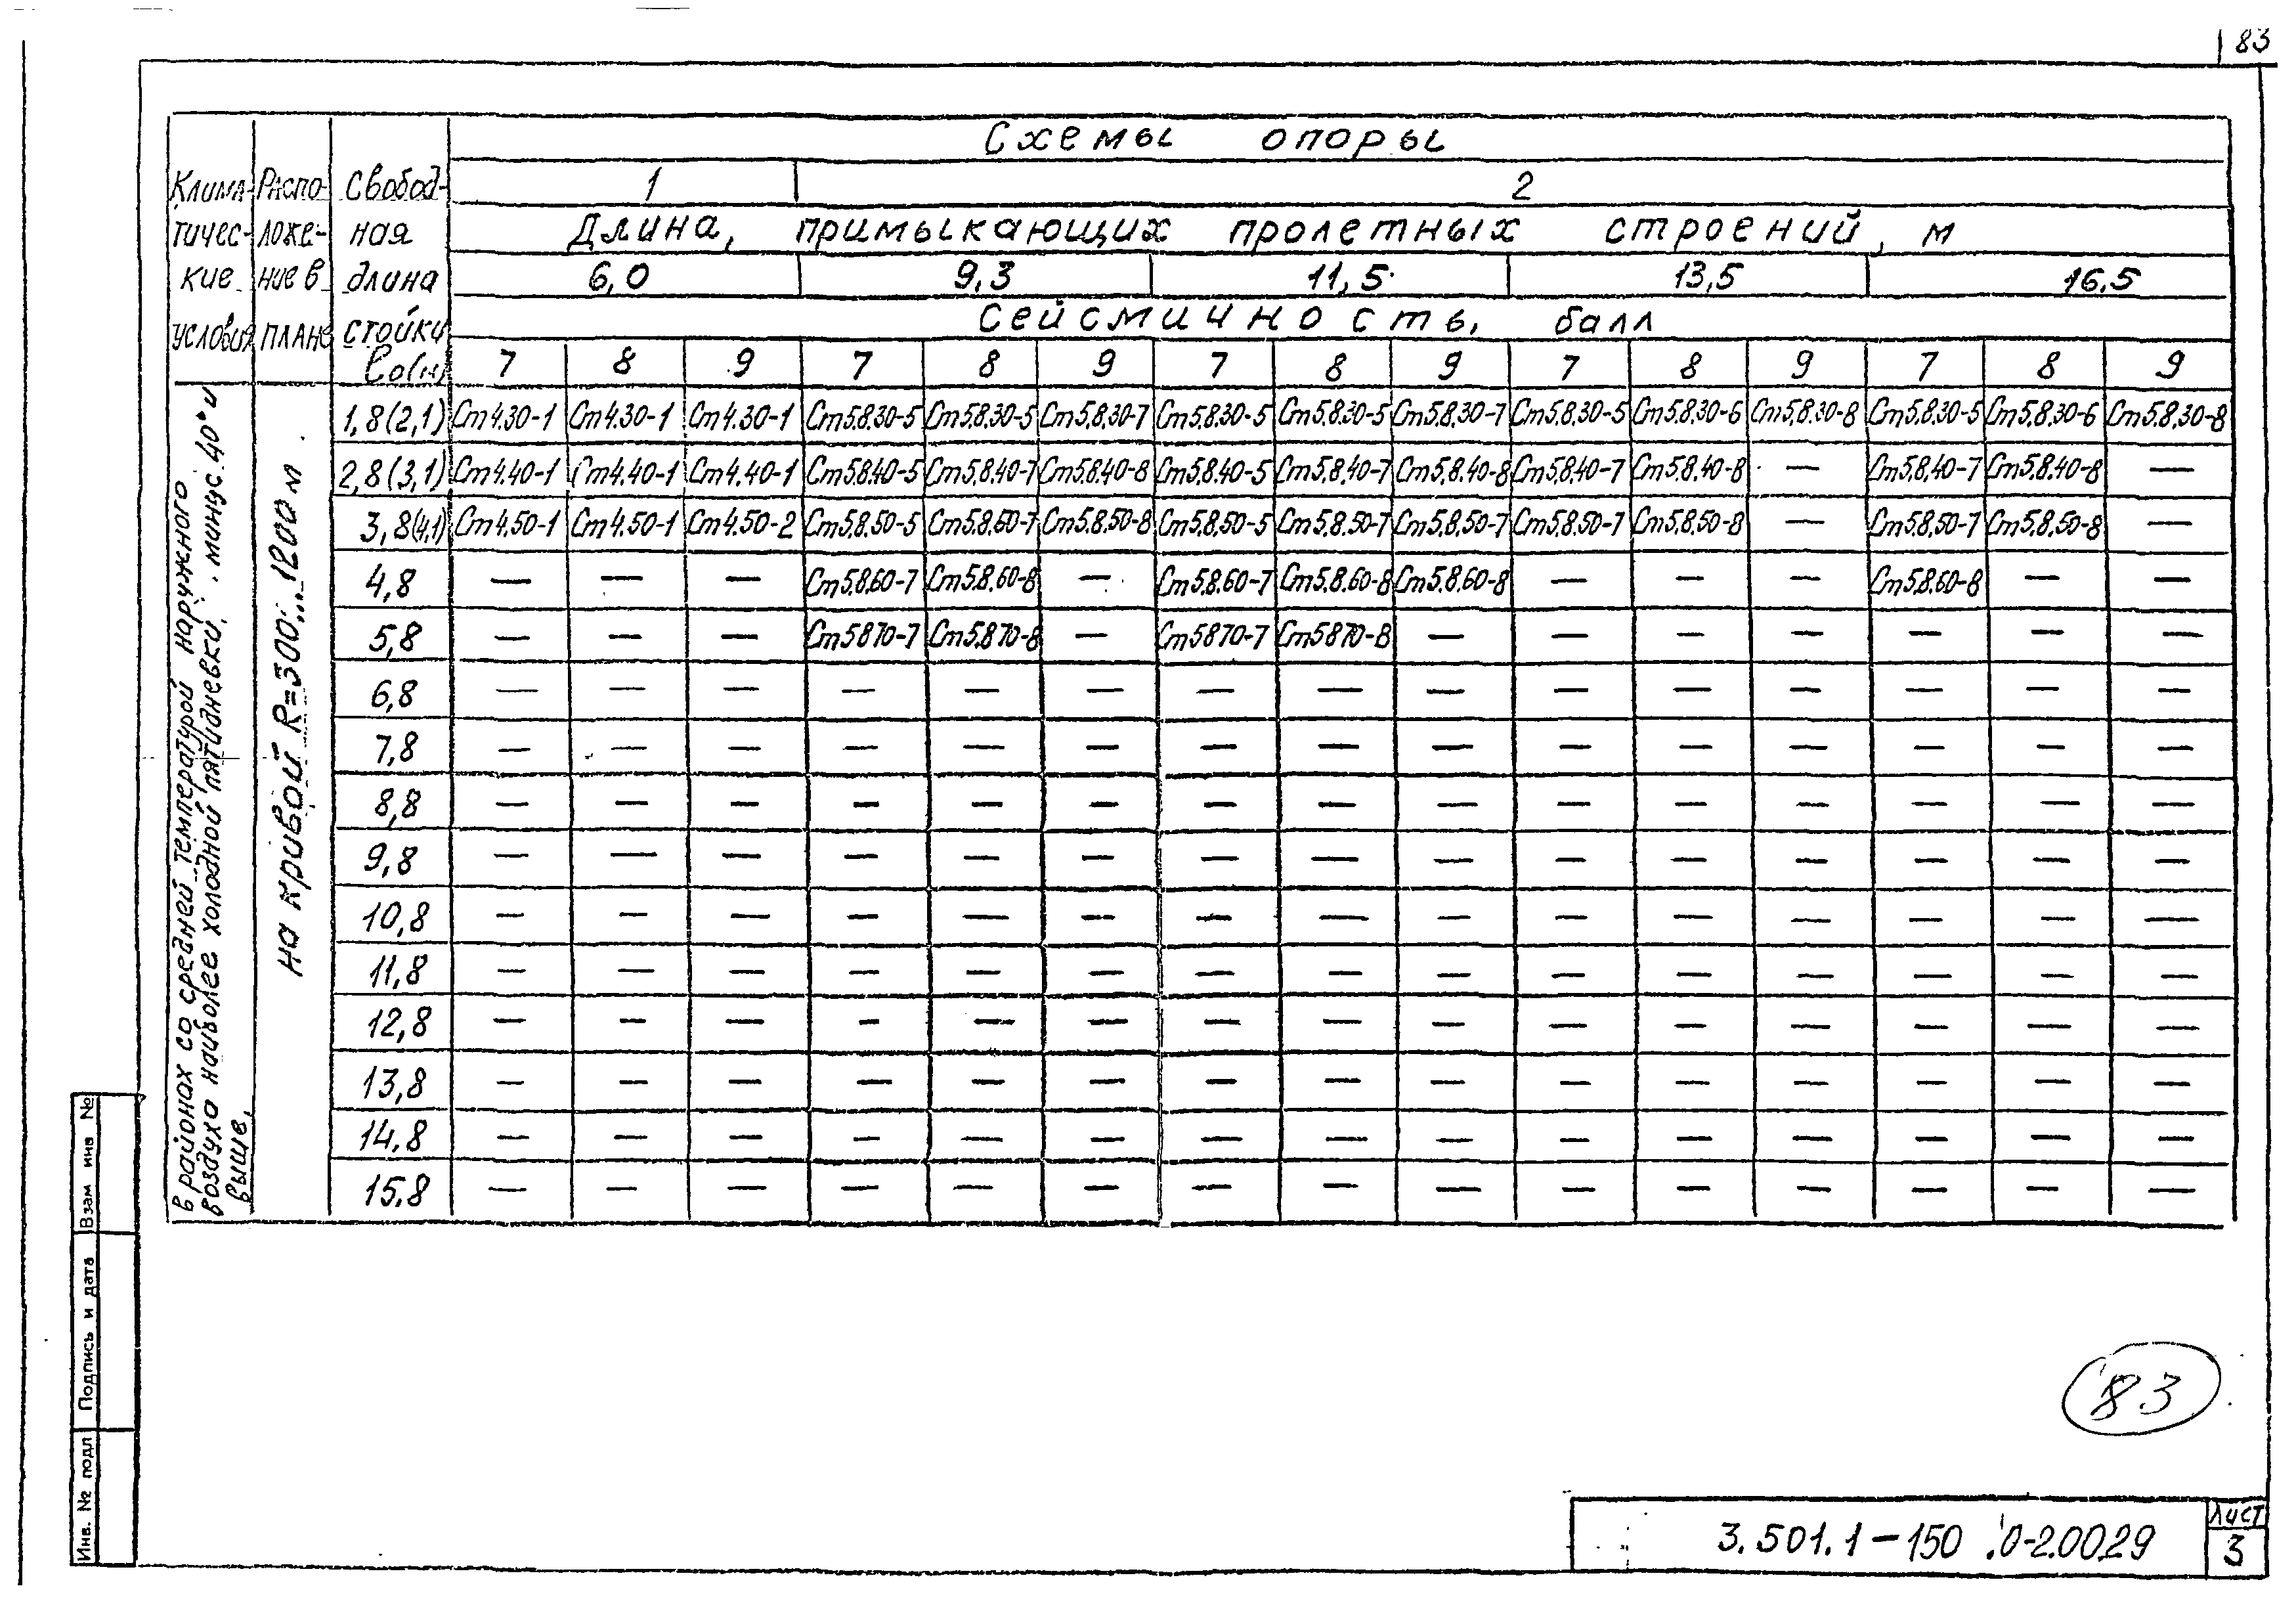 83
Схемы опоры
Клима- Распо- Свобод- 1 2
тичес- ложе- ная Длина, примыкающих пролетных строений, м
кие ние в длина 6,0 9,3 11,5 13,5 16.5
условия плане стойки Сейсмичность, балл
ℓо(м) 7 8 9 7 8 9 7 8 9 7 8 9 7 8 9
В районах со средней температурой наружного
воздуха наиболее холодной пятидневки, минус 40° и
выше.
на кривой R=300...1200 м
1,8(2,1) Ст4.30-1 Ст4.30-1 Ст4.30-1 Ст5.8.30-5 Ст5.8.30-5 Ст5.8.30-7 Ст5.8.30-5 Ст5.8.30-5 Ст5.8.30-7 Ст5.8.30-5 Ст5.8.30-6 Ст5.8.30-8 Ст5.8.30-5 Ст5.8.30-6 Ст5.8.30-8
2,8(3,1) Ст4.40-1 Ст4.40-1 Ст4.40-1 Ст5.8.40-5 Ст5.8.40-7 Ст5.8.40-8 Ст5.8.40-5 Ст5.8.40-7 Ст5.8.40-8 Ст5.8.40-7 Ст5.8.40-8 — Ст5.8.40-7 Ст5.8.40-8 —
3,8(4,1) Ст4.50-1 Ст4.50-1 Ст4.50-2 Ст5.8.50-5 Ст5.8.60-7 Ст5.8.50-8 Ст5.8.50-5 Ст5.8.50-7 Ст5.8.50-7 Ст5.8.50-7 Ст5.8.50-8 — Ст5.8.50-7 Ст5.8.50-8 —
4,8 — — — Ст5.8.60-7 Ст5.8.60-8 — Ст5.8.60-7 Ст5.8.60-8 Ст5.8.60-8 — — — Ст5.8.60-8 — —
5,8 — — — Ст5870-7 Ст5.870-8 — Ст5870-7 Ст5870-8 — — — — — — —
6,8 — — — — — — — — — — — — — — —
7,8 — — — — — — — — — — — — — — —
8,8 — — — — — — — — — — — — — — —
9,8 — — — — — — — — — — — — — — —
10,8 — — — — — — — — — — — — — — —
11,8 — — — — — — — — — — — — — — —
12,8 — — — — — — — — — — — — — — —
13,8 — — — — — — — — — — — — — — —
14,8 — — — — — — — — — — — — — — —
15.8 — — — — — — — — — — — — — — —
Взам инв №
Подпись и дата
Инв. № подл
83
3.501.1-150 .0-2.0029
Лист
3